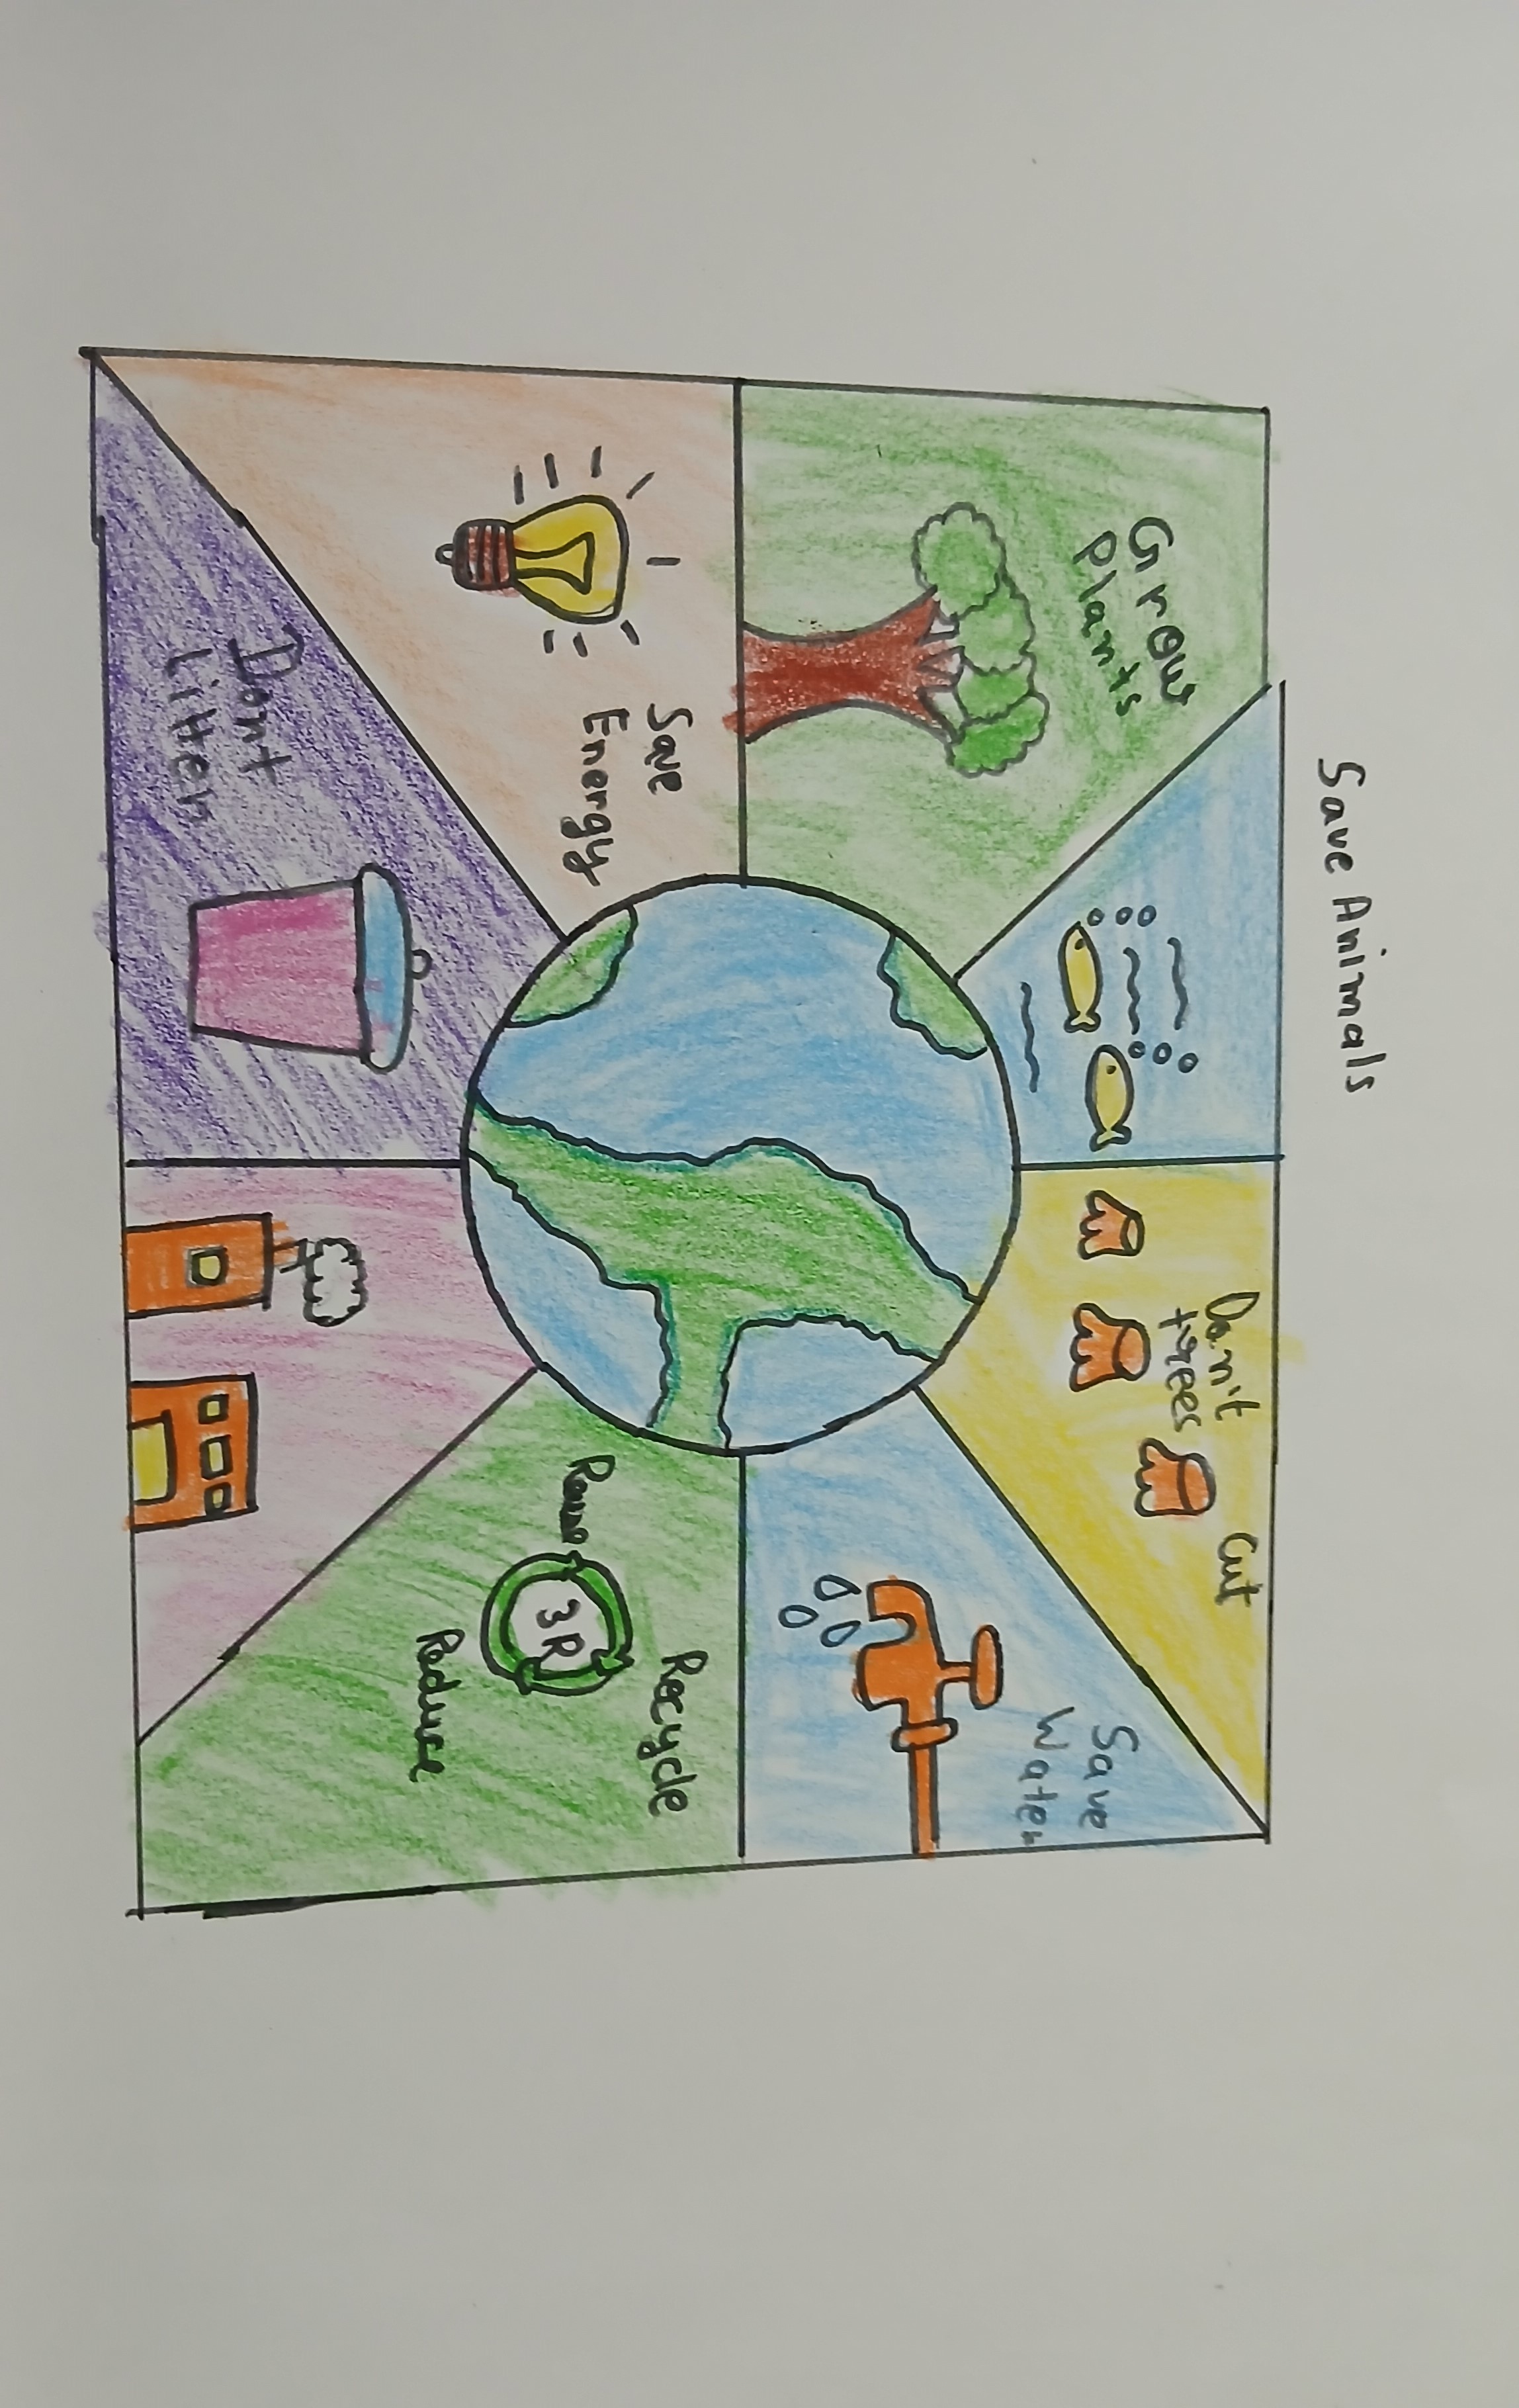 Save Animals
Grow
Plants
Don't Cut
trees
Save
Water
Save
Energy
Recycle
Reuse
3R
Reduce
Dont
Litter